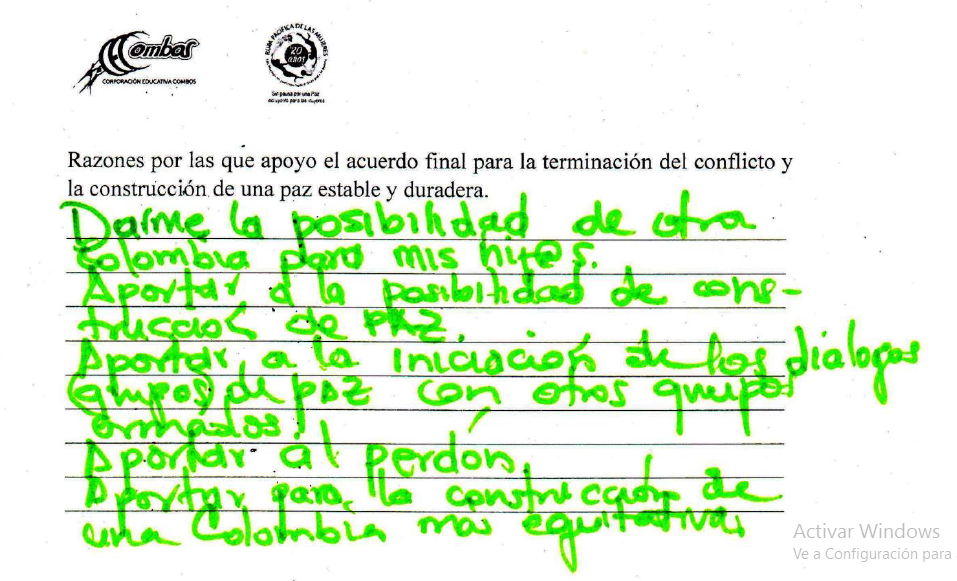 Combos
CORPORACIÓN EDUCATIVA COMBOS
RUTA PACÍFICA DE LAS MUJERES
20 años
Razones por las que apoyo el acuerdo final para la terminación del conflicto y
la construcción de una paz estable y duradera.
Darme la posibilidad de otra
Colombia para mis hij@s.
Aportar a la posibilidad de cons-
trucción de PAZ.
Aportar a la iniciación de los dialogos
(grupos) de paz con otros grupos
armados.
Aportar al perdón.
Aportar para la construcción de
una Colombia más equitativa.
Activar Windows
Ve a Configuración para